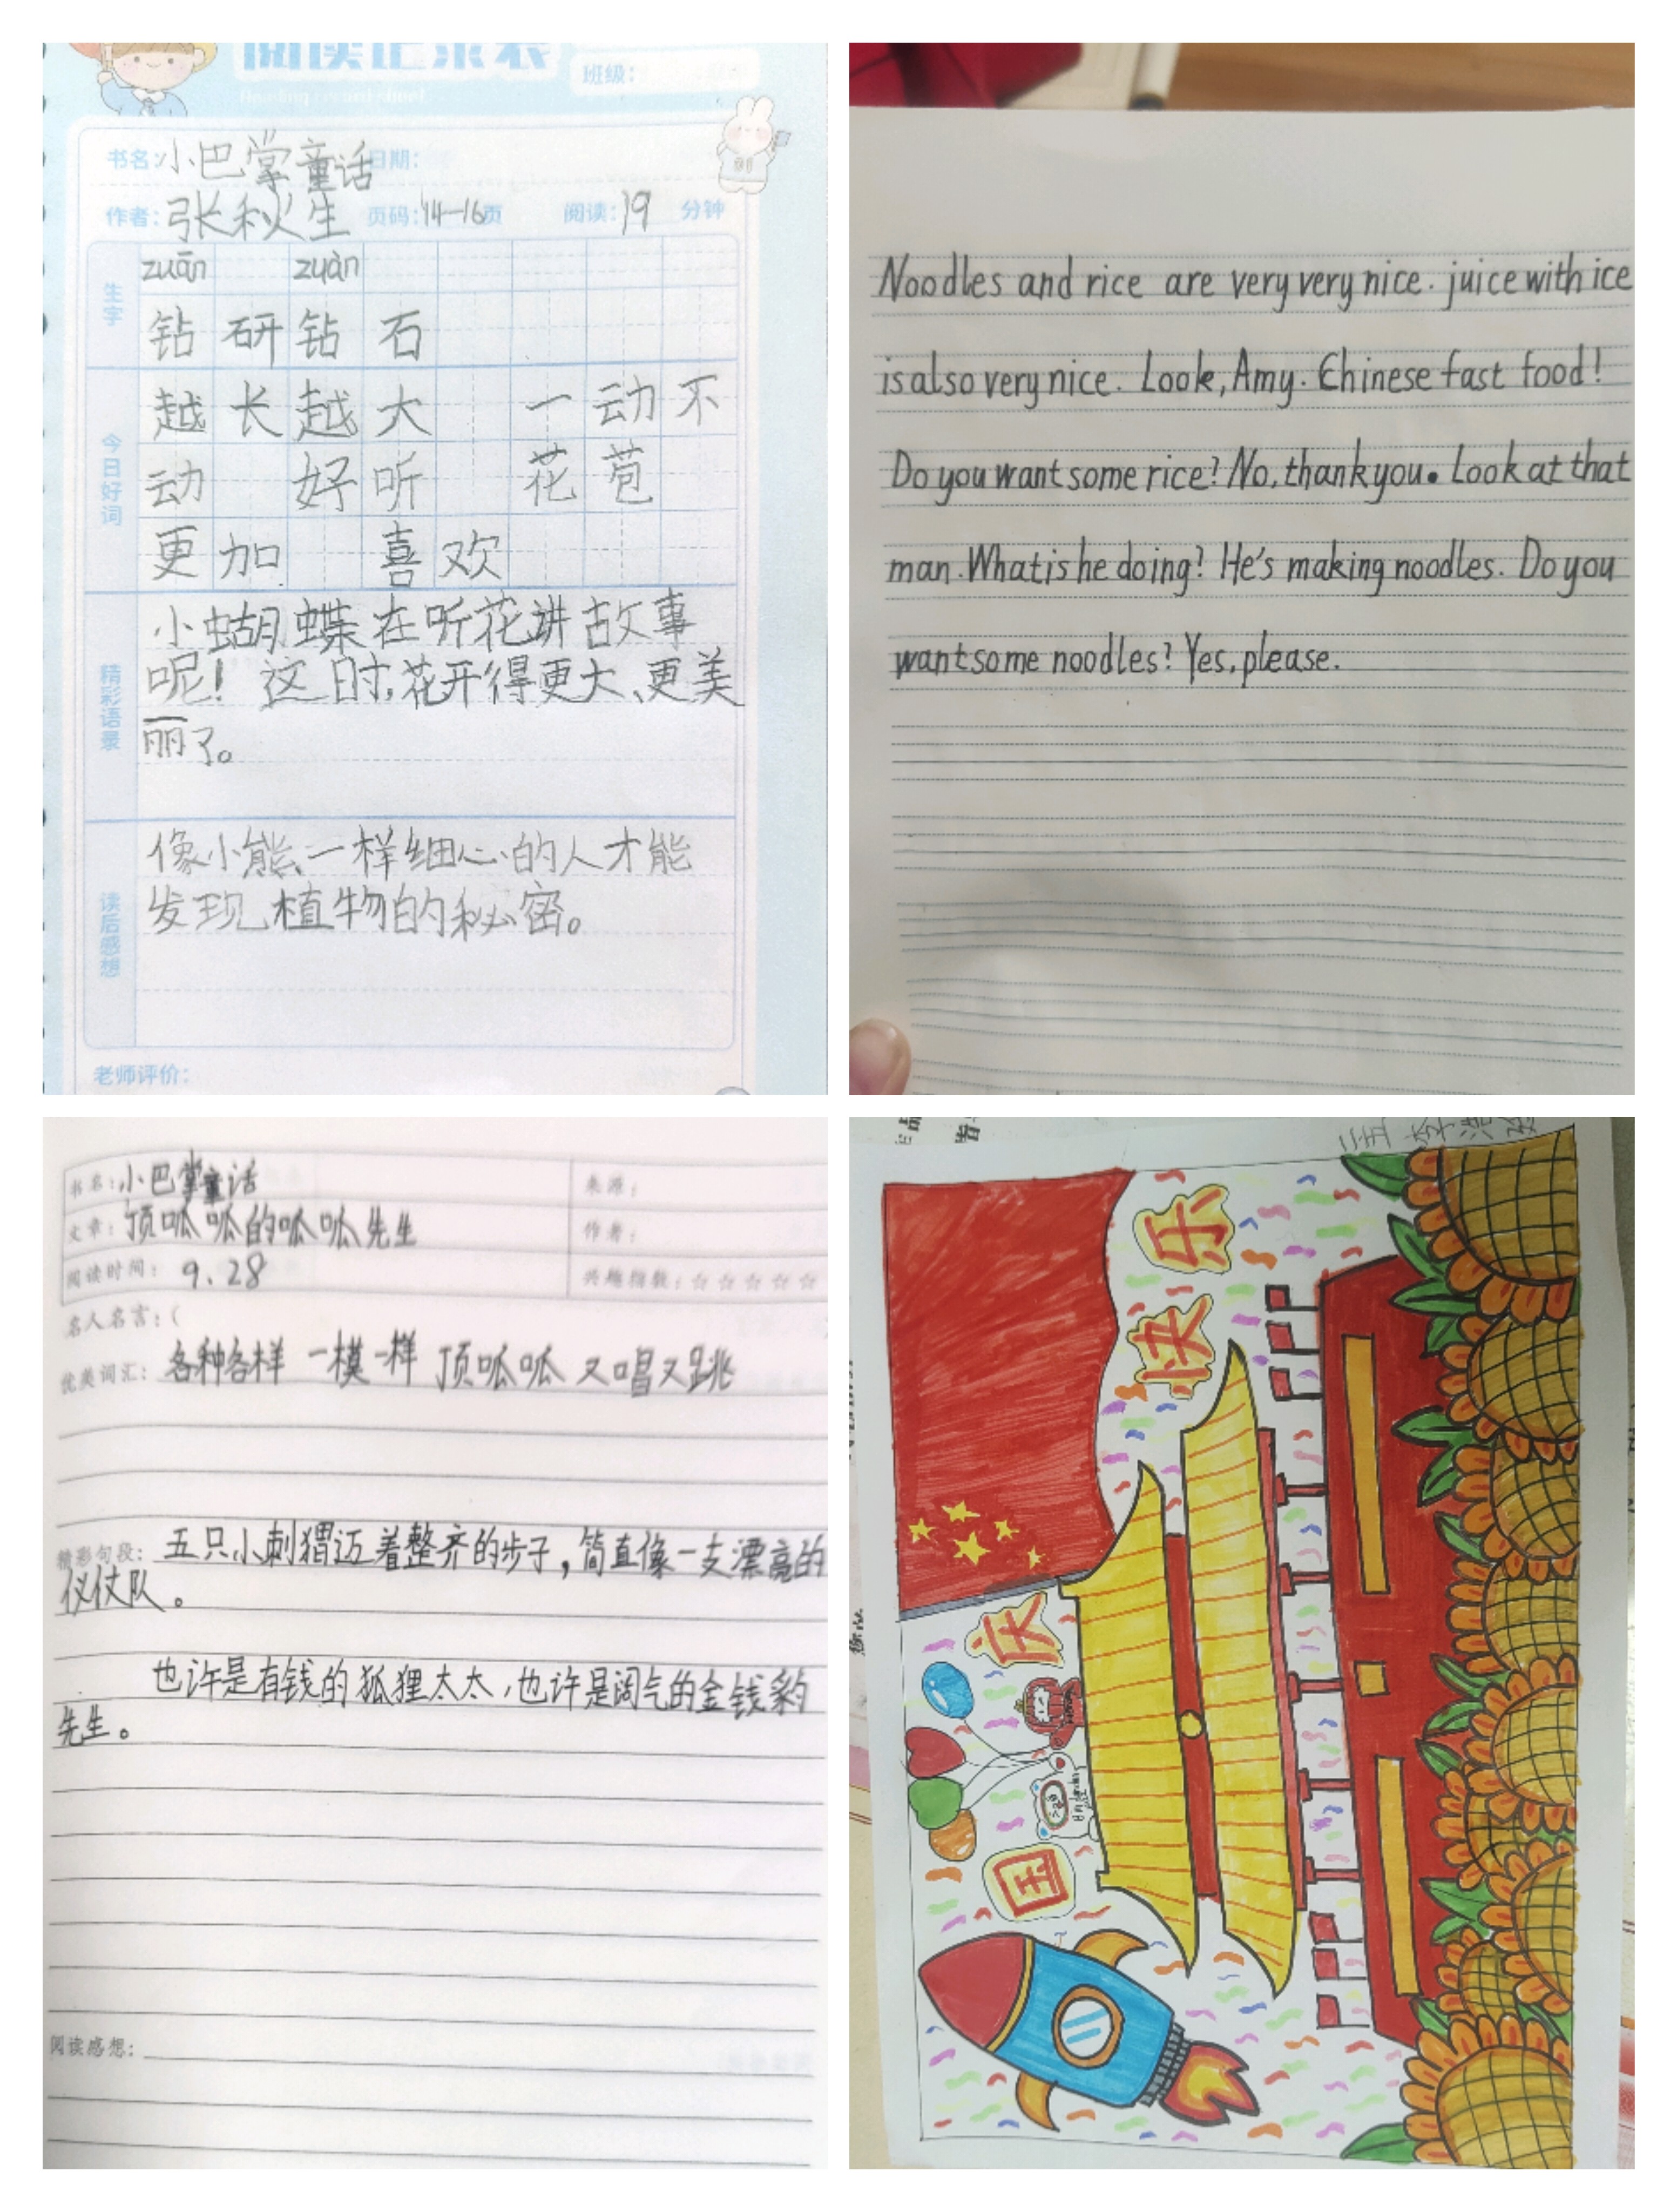 阅读记录表
Reading record sheet
班级:
书名:小巴掌童话 日期:
作者:张秋生 页码:14-16页 阅读:19 分钟
生字
zuān zuàn
钻研钻石
今日好词
越长越大 一动不
动 好听 花苞
更加 喜欢
精彩语录
小蝴蝶在听花讲故事
呢!这时,花开得更大、更美
丽了。
读后感想
像小熊一样细心的人才能
发现植物的秘密。
老师评价:
Noodles and rice are very very nice. juice with ice
is also very nice. Look, Amy. Chinese fast food!
Do you want some rice? No, thank you. Look at that
man. What is he doing? He's making noodles. Do you
want some noodles? Yes, please.
书名:小巴掌童话 来源:
文章:顶呱呱的呱呱先生 作者:
阅读时间: 9.28 兴趣指数:☆☆☆☆☆
名人名言:(
优美词汇: 各种各样 一模一样 顶呱呱 又唱又跳
精彩句段: 五只小刺猬迈着整齐的步子,简直像一支漂亮的
仪仗队。
也许是有钱的狐狸太太,也许是阔气的金钱豹
先生。
阅读感想:
二五 李浩
国庆快乐